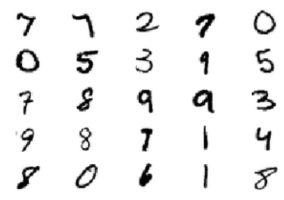 7 7 2 7 0
0 5 3 9 5
7 8 9 9 3
9 8 7 1 4
8 0 6 1 8